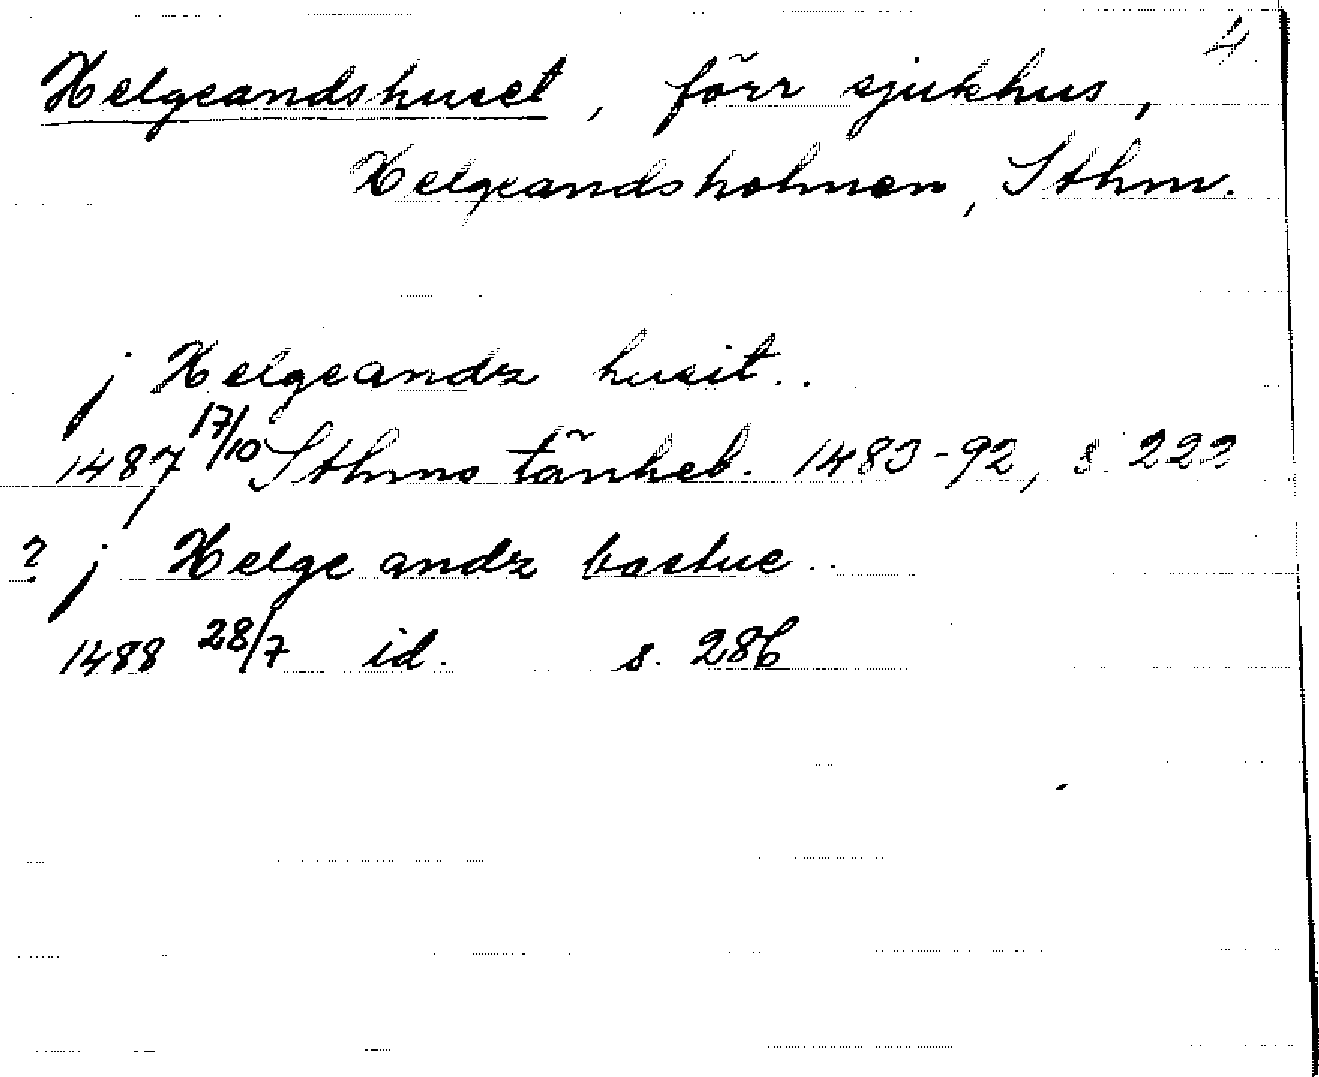 4
Helgeandshuset, förr sjukhus,
Helgeandsholmen, Sthm.
j Helgeandz husit..
1487 17/10 Sthms tänkeb. 1483-92, s. 222
? j Helge andz bastue..
1488 28/7 id. s. 286